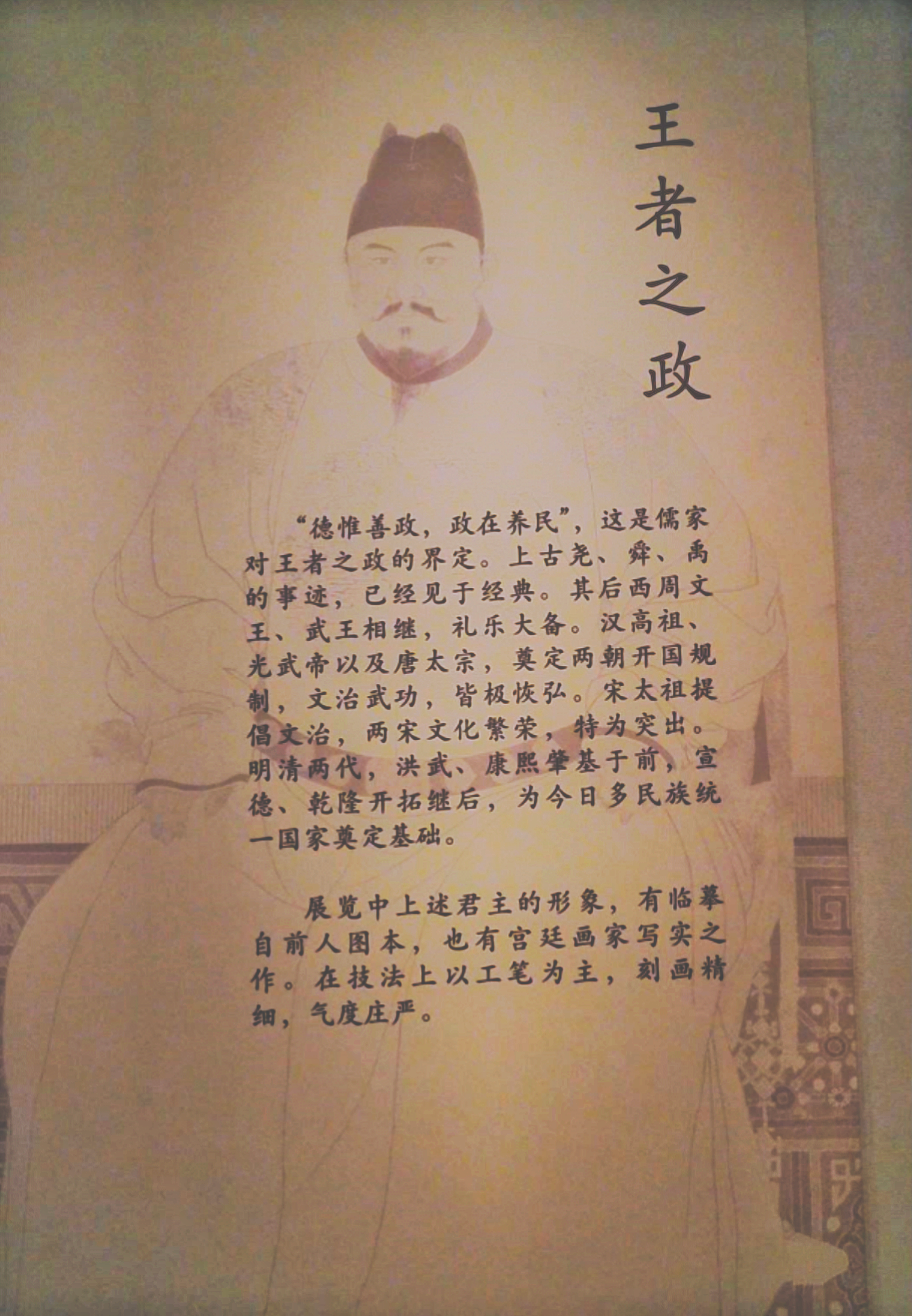 王者之政
“德惟善政，政在养民”，这是儒家
对王者之政的界定。上古尧、舜、禹
的事迹，已经见于经典。其后西周文
王、武王相继，礼乐大备。汉高祖、
光武帝以及唐太宗，奠定两朝开国规
制，文治武功，皆极恢弘。宋太祖提
倡文治，两宋文化繁荣，特为突出。
明清两代，洪武、康熙肇基于前，宣
德、乾隆开拓继后，为今日多民族统
一国家奠定基础。
展览中上述君主的形象，有临摹
自前人图本，也有宫廷画家写实之
作。在技法上以工笔为主，刻画精
细，气度庄严。